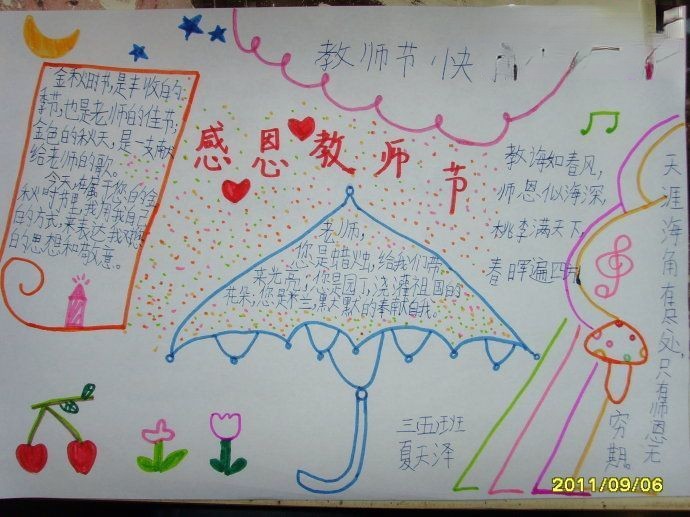 教师节快
金秋时节,是丰收的
季节,也是老师的佳节;
金色的秋天,是一支献
给老师的歌。
今天,在属于您的金
秋时节里,我用我自己
的方式,来表达我对您
的思想和敬意。
感恩教师节
老师,
您是蜡烛,给我们带
来光亮;您是园丁,浇灌祖国的
花朵;您是米兰,默默的奉献自我。
教海如春风,
师恩似海深,
桃李满天下,
春晖遍四方
天涯海角有尽处,只有师恩无
穷期。
三(五)班
夏天泽
2011/09/06